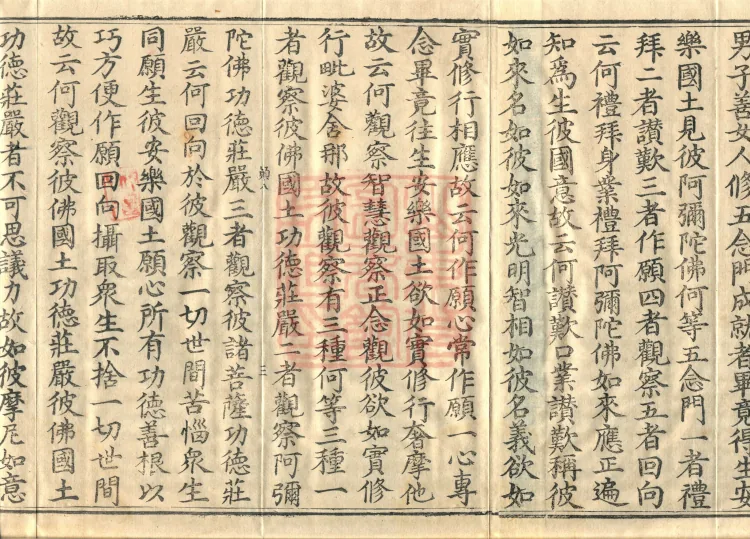 男子善女人修五念門成就者畢竟得生安
樂國土見彼阿彌陀佛何等五念門一者禮
拜二者讃歎三者作願四者觀察五者回向
云何禮拜身業禮拜阿彌陀佛如來應正遍
知爲生彼國意故云何讃歎口業讃歎稱彼
如來名如彼如來光明智相如彼名義欲如
實修行相應故云何作願心常作願一心專
念畢竟往生安樂國土欲如實修行奢摩他
故云何觀察智慧觀察正念觀彼欲如實修
行毗婆舍那故彼觀察有三種何等三種一
者觀察彼佛國土功德莊嚴二者觀察阿彌
三
陀佛功德莊嚴三者觀察彼諸菩薩功德莊
嚴云何回向於彼觀察一切世間苦惱衆生
同願生彼安樂國土願心所有功德善根以
巧方便作願回向攝取衆生不捨一切世間
故云何觀察彼佛國土功德莊嚴彼佛國土
功德莊嚴者不可思議力故如彼摩尼如意